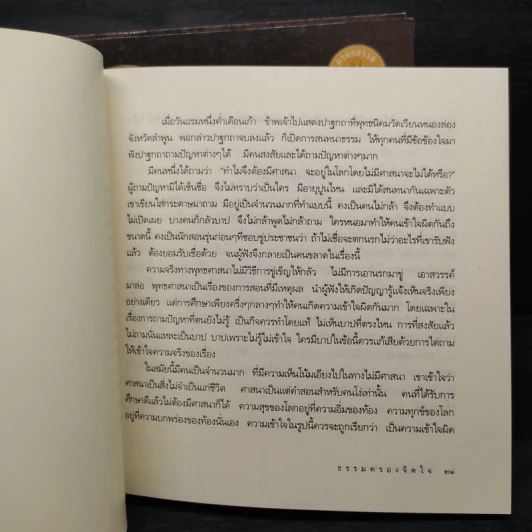 เมื่อวันแรมหนึ่งค่ำเดือนเก้า ข้าพเจ้าไปแสดงปาฐกถาที่พุทธนิคมวัดเวียนหนองล่อง
จังหวัดลำพูน พอกล่าวปาฐกถาจบลงแล้ว ก็เปิดการสนทนาธรรม ให้ทุกคนที่มีข้อข้องใจมา
ฟังปาฐกถาถามปัญหาต่างๆได้ มีคนสงสัยและได้ถามปัญหาต่างๆมาก
มีคนหนึ่งได้ถามว่า "ทำไมจึงต้องมีศาสนา จะอยู่ในโลกโดยไม่มีศาสนาจะไม่ได้หรือ?"
ผู้ถามปัญหามิได้เซ็นชื่อ จึงไม่ทราบว่าเป็นใคร มีอายุปูนไหน และมิได้สนทนากันเฉพาะตัว
เขาเขียนใส่กระดาษมาถาม มีอยู่เป็นจำนวนมากที่ทำแบบนี้ คงเป็นคนไม่กล้า จึงต้องทำแบบ
ไม่เปิดเผย บางคนก็กลัวบาป จึงไม่กล้าพูดไม่กล้าถาม ใครหนอมาทำให้คนเข้าใจผิดกันถึง
ขนาดนี้ คงเป็นนักสอนรุ่นก่อนๆที่ชอบขู่ประชาชนว่า ถ้าไม่เชื่อจะตกนรกไม่ว่าอะไรที่เขารับฟัง
แล้ว ต้องยอมรับเชื่อด้วย จนผู้ฟังจึงกลายเป็นคนขลาดในเรื่องนี้
ความจริงทางพุทธศาสนาไม่มีวิธีการขู่เข็ญให้กลัว ไม่มีการเอานรกมาขู่ เอาสวรรค์
มาล่อ พุทธศาสนาเป็นเรื่องของการสอนที่มีเหตุผล นำผู้ฟังให้เกิดปัญญารู้แจ้งเห็นจริงเพียง
อย่างเดียว แต่การศึกษาเพียงครึ่งๆกลางๆทำให้คนเกิดความเข้าใจผิดกันมาก โดยเฉพาะใน
เรื่องการถามปัญหาที่ตนยังไม่รู้ เป็นกิจควรทำโดยแท้ ไม่เห็นบาปที่ตรงไหน การที่สงสัยแล้ว
ไม่ถามนั่นแหละเป็นบาป บาปเพราะไม่รู้ไม่เข้าใจ ใครมีบาปในข้อนี้ควรแก้เสียด้วยการไต่ถาม
ให้เข้าใจความจริงของเรื่อง
ในสมัยนี้มีคนเป็นจำนวนมาก ที่มีความเห็นโน้มเอียงไปในทางไม่มีศาสนา เขาเข้าใจว่า
ศาสนาเป็นสิ่งไม่จำเป็นแก่ชีวิต ศาสนาเป็นแต่คำสอนสำหรับคนโง่เท่านั้น คนที่ได้รับการ
ศึกษาดีแล้วไม่ต้องมีศาสนาก็ได้ ความสุขของโลกอยู่ที่ความอิ่มของท้อง ความทุกข์ของโลก
อยู่ที่ความบกพร่องของท้องนั่นเอง ความเข้าใจในรูปนี้ควรจะถูกเรียกว่า เป็นความเข้าใจผิด
ธรรมครองจิตใจ